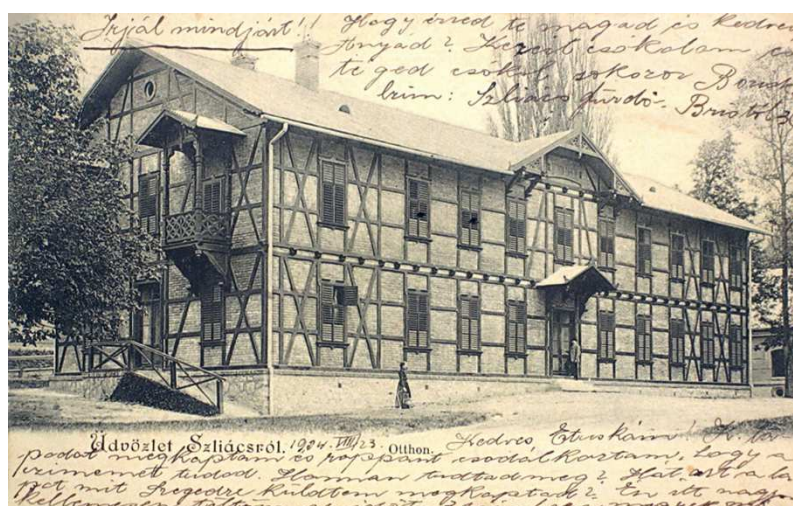 Irjál mindjárt!! Hogy érzed te magad és kedves
Anyád? Kezeit csókolom és
téged csókol sokszor
Czim: Szliács fürdő - Bristol
Üdvözlet Szliácsról. 1904. VIII/23
Otthon.
Kedves Etuskám!
megkaptam és roppant csodálkoztam, hogy a
czimemet tudod. Honnan tudtad meg? Hát azt a la
pot mit Szegedre küldtem megkaptad? Én itt nagyon
kellemesen